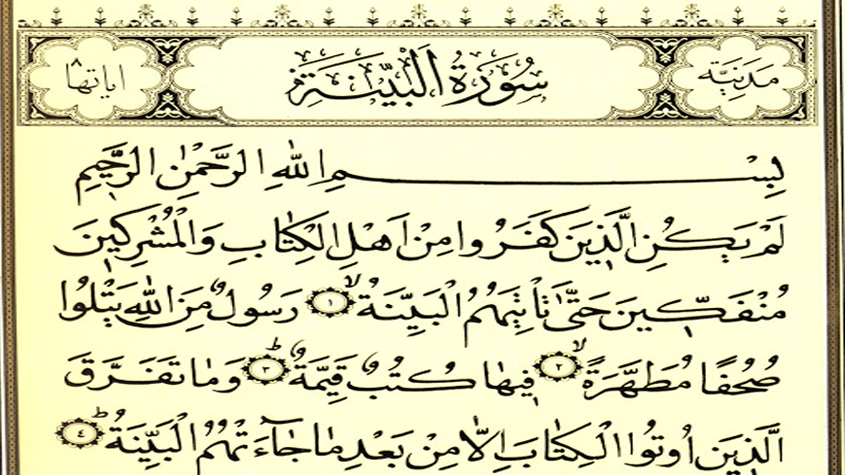 مدنية سُورَةُ الْبَيِّنَةِ اياتها ٨
بِسْمِ اللّٰهِ الرَّحْمٰنِ الرَّحٖيمِ
لَمْ يَكُنِ الَّذٖينَ كَفَرُوا مِنْ اَهْلِ الْكِتَابِ وَالْمُشْرِكٖينَ
مُنْفَكّٖينَ حَتّٰى تَاْتِيَهُمُ الْبَيِّنَةُۙ ١ رَسُولٌ مِنَ اللّٰهِ يَتْلُوا
صُحُفًا مُطَهَّرَةًۙ ٢ فٖيهَا كُتُبٌ قَيِّمَةٌؕ ٣ وَمَا تَفَرَّقَ
الَّذٖينَ اُوتُوا الْكِتَابَ اِلَّا مِنْ بَعْدِ مَا جَٓاءَتْهُمُ الْبَيِّنَةُؕ ٤